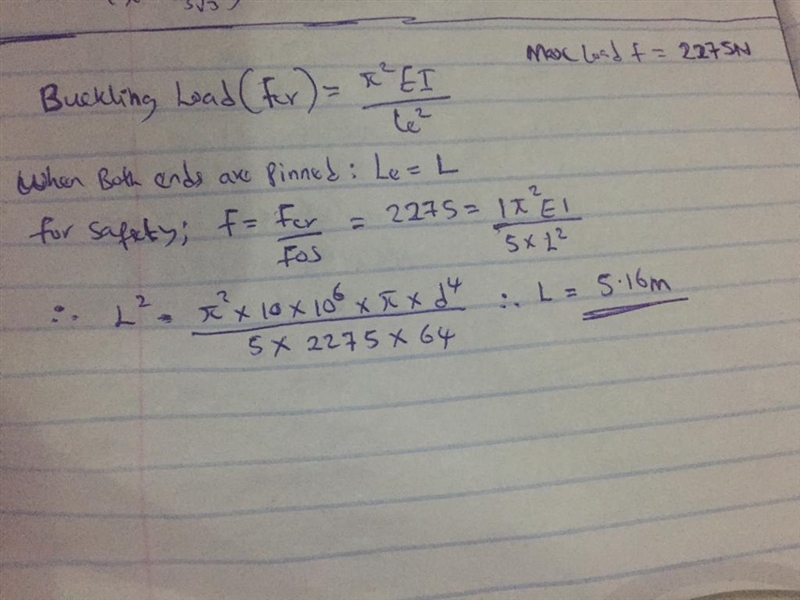 Max Load f = 2275N
Buckling Load (Fcr) = π²EI / Le²
When Both ends are Pinned: Le = L
for safety; f = Fcr / FOS = 2275 = 1π²EI / 5×L²
∴ L² = π² × 10 × 10⁶ × π × d⁴ / 5 × 2275 × 64 ∴ L = 5.16m